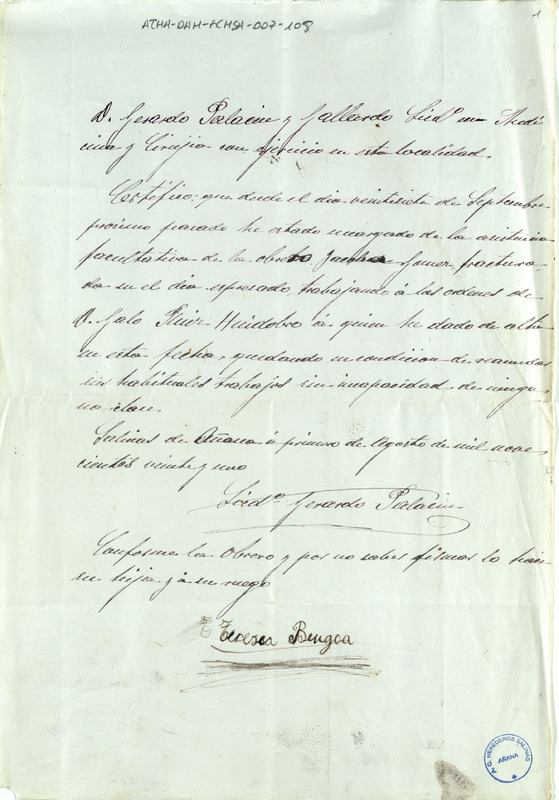 ATHA-DAH-FCHSA-007-108
1
D. Gerardo Palacin y Gallardo Licdº en Medi
cina y Cirujia con ejercicio en esta localidad.
Certifico: que desde el dia veintisiete de Septiembre
proximo pasado he estado encargado de la asistencia
facultativa de la obrera Gomez, fractura
da en el dia expresado, trabajando á las ordenes de
D. Galo Ruiz Huidobro á quien he dado de alta
en esta fecha, quedando en condicion de reanudar
sus habituales trabajos sin incapacidad de ningu
na clase.
Salinas de Añana á primero de Agosto de mil nove
cientos veinte y uno
Licdº Gerardo Palacin
Conforme la Obrera y por no saber firmar lo hace
su hija y á su ruego
Teresa Bengoa
A.G. HEREDEROS SALINAS
AÑANA